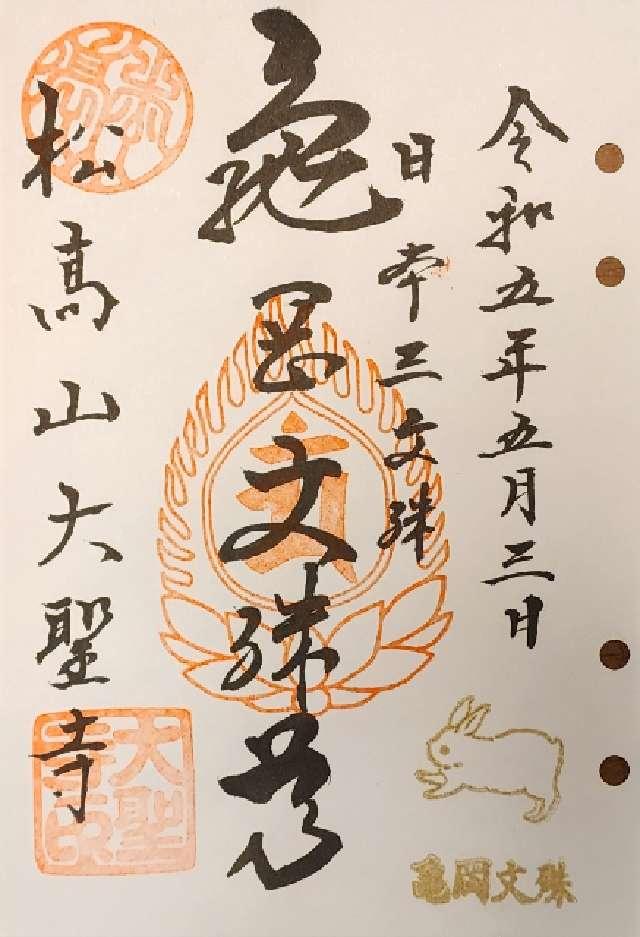 令和五年五月三日
日本三文殊
亀岡文殊尊
松高山大聖寺
大聖
亀岡文殊